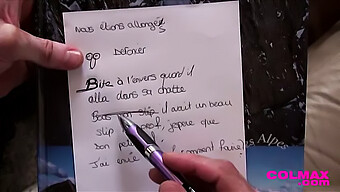 Nous étions allongés
Détoner
Bite à l'envers quand il
alla dans sa chatte
Pas un slip il avait un beau
slip j'espère que
Don
J'ai envie comment faire
Alpes
COLMAX
.com